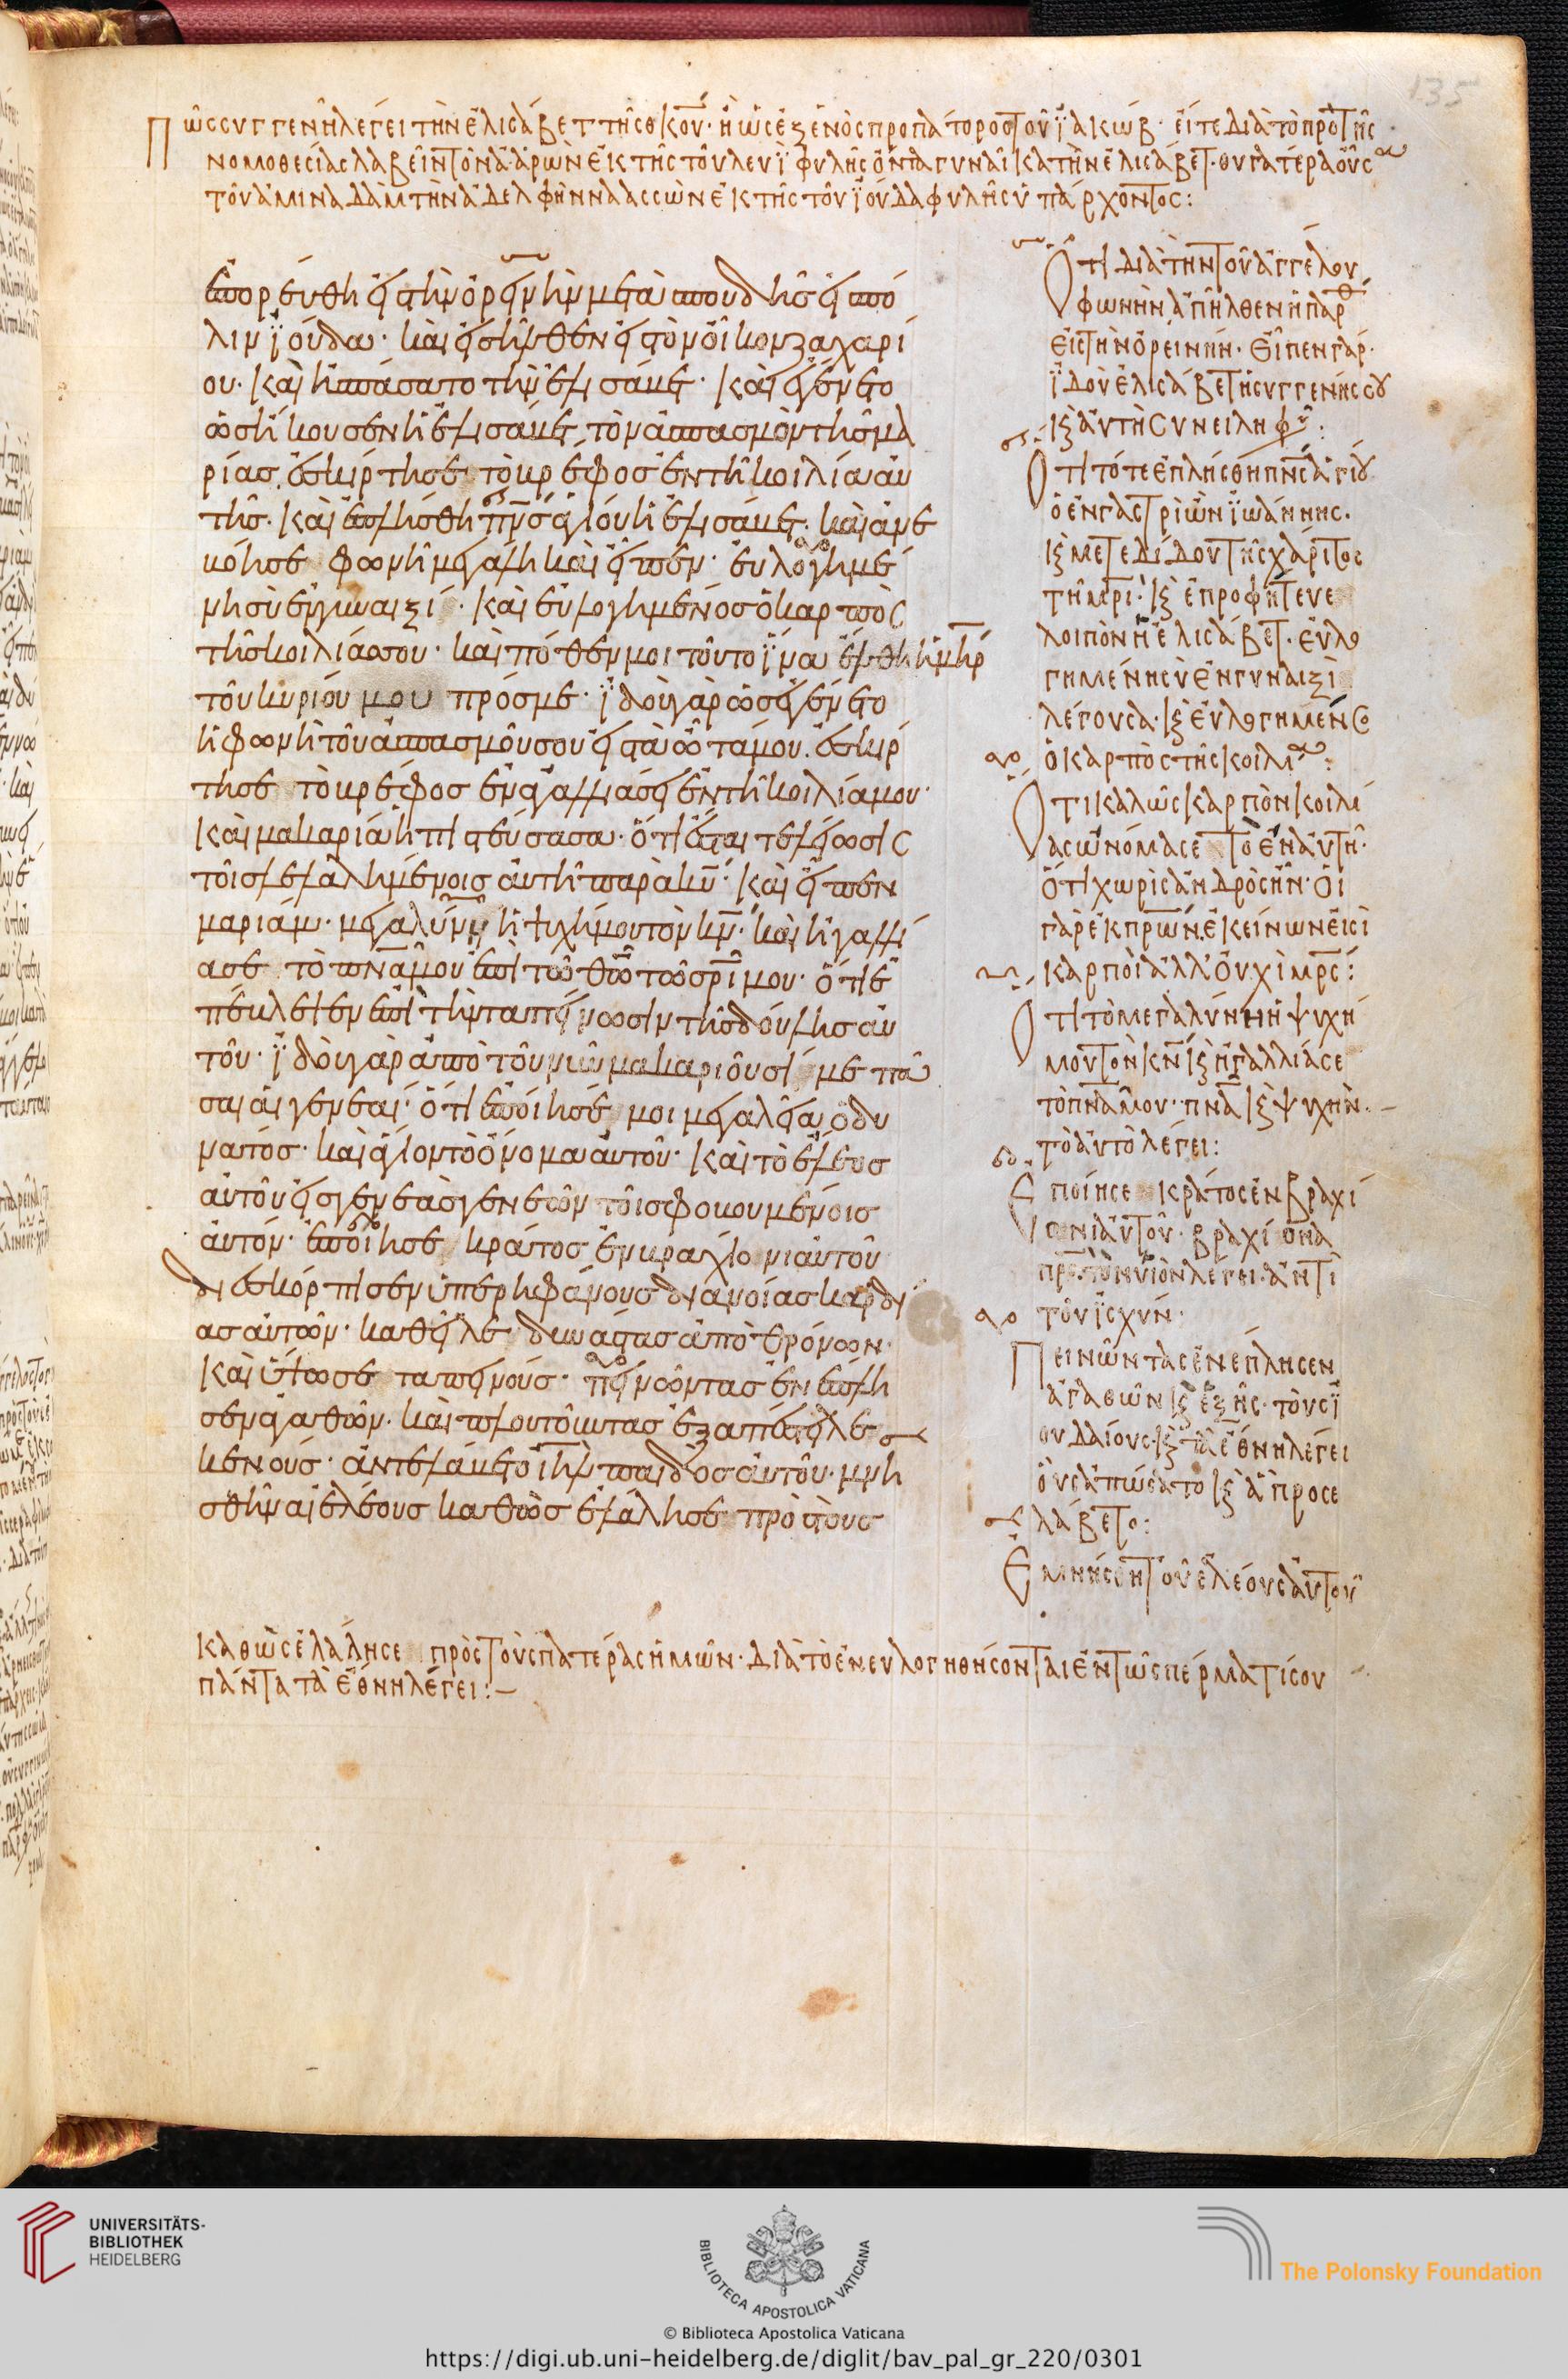 135
Πῶς συγγενῆ λέγει τὴν ἐλισάβετ τῆς θκου· ἢ ὡς ἐξ ἑνὸς προπάτορος τοῦ ϊακώβ· εἴτε διὰ τὸ πρὸ τῆς
νομοθεσίας λαβεῖν τὸν ἀαρὼν ἐκ τῆς τοῦ λευϊ φυλῆς ὄντα γυναῖκα τὴν ἐλισάβετ· θυγατέρα οὖσαν
τοῦ ἀμιναδὰμ τὴν ἀδελφὴν ναασσὼν ἐκ τῆς τοῦ ϊούδα φυλῆς ὑπάρχοντος:
ἐπορεύθη εἰς τὴν ὀρεινὴν μετὰ σπουδῆς εἰς πό
λιν ϊούδα· καὶ εἰσῆλθεν εἰς τὸν οἶκον ζαχαρί
ου· καὶ ἠσπάσατο τὴν ἐλισάβετ· καὶ ἐγένετο
ὡς ἤκουσεν ἡ ἐλισάβετ τὸν ἀσπασμὸν τῆς μα
ρίας, ἐσκίρτησε τὸ βρέφος ἐν τῆ κοιλία αὐ
τῆς. καὶ ἐπλήσθη πνς ἁγίου ἡ ἐλισάβετ. καὶ ἀνε
βόησε φωνῆ μεγάλη καὶ εἶπεν· εὐλογημέ
νη σὺ ἐν γυναιξί· καὶ εὐλογημένος ὁ καρπὸς
τῆς κοιλίας σου· καὶ πόθεν μοι τοῦτο ϊνα ἔλθη ἡ μηρ
τοῦ κυρίου μου πρός με· ϊδοὺ γὰρ ὡς ἐγένετο
ἡ φωνὴ τοῦ ἀσπασμοῦ σου εἰς τὰ ὦτά μου. ἐσκίρ
τησε τὸ βρέφος ἐν ἀγαλλιάσει ἐν τῆ κοιλία μου·
καὶ μακαρία ἡ πιστεύσασα· ὅτι ἔσται τελείωσις
τοῖς λελαλημένοις αὐτῆ παρὰ κυ· καὶ εἶπεν
μαριάμ· μεγαλύνει ἡ ψυχή μου τὸν κν· καὶ ἠγαλλί
ασε τὸ πνα μου ἐπὶ τῶ θω τῶ σρι μου· ὅτι ἐ
πέβλεψεν ἐπὶ τὴν ταπείνωσιν τῆς δούλης αὐ
τοῦ· ϊδοὺ γὰρ ἀπὸ τοῦ νῦν μακαριοῦσί με πᾶ
σαι αἱ γενεαί· ὅτι ἐποίησέ μοι μεγαλεῖα ὁ δυ
νατός· καὶ ἅγιον τὸ ὄνομα αὐτοῦ· καὶ τὸ ἔλεος
αὐτοῦ εἰς γενεὰς γενεῶν τοῖς φοβουμένοις
αὐτόν· ἐποίησε κράτος ἐν βραχίονι αὐτοῦ
διεσκόρπισεν ὑπερηφάνους διανοία καρδί
ας αὐτῶν· καθεῖλε δυνάστας ἀπὸ θρόνων·
καὶ ὕψωσε ταπεινούς· πεινῶντας ἐνέπλη
σεν ἀγαθῶν· καὶ πλουτοῦντας ἐξαπέστειλε
κενούς· ἀντελάβετο ιηλ παιδὸς αὐτοῦ· μνη
σθῆναι ἐλέους καθὼς ἐλάλησε πρὸς τοὺς
Ὅτι διὰ τὴν τοῦ ἀγγέλου
φωνὴν, ἀπῆλθεν ἡ παρθ
εἰς τὴν ὀρεινήν. εἶπεν γάρ·
ϊδοὺ ἐλισάβετ ἡ συγγενής σου
κὶ αὐτὴ συνειληφυ:
Ὅτι τότε ἐπλήσθη πνς ἁγίου
ὁ ἐν γαστρὶ ὢν ϊωάννης.
κὶ μετεδίδου τῆς χάριτος
τῆ μρι· κὶ ἐπροφήτευε
λοιπὸν ἡ ἐλισάβετ. εὐλο
γημένη σὺ ἐν γυναιξὶ
λέγουσα· κὶ εὐλογημένος
ὁ καρπὸς τῆς κοιλίας:
Ὅτι καλῶς καρπὸν κοιλί
ας ὠνόμασε τὸ ἐν αὐτῆ·
ὅτι χωρὶς ἀνδρὸς ἦν· οἱ
γὰρ ἐκ πρων, ἐκείνων εἰσὶ
καρποὶ ἀλλ' οὐχὶ μρς:
Ὅτι τὸ μεγαλύνει ἡ ψυχή
μου τὸν κν κὶ ἠγαλλίασε
τὸ πνα μου· πνα κὶ ψυχὴν
τὸ αὐτὸ λέγει:
Ἐποίησε κράτος ἐν βραχί
ονι αὐτοῦ· βραχίονα
πρς τὸν υἱὸν λέγει· ἀντὶ
τοῦ ϊσχύν·
Πεινῶντας ἐνέπλησεν
ἀγαθῶν κὶ ἑξῆς· τοὺς ϊ
ουδαίους κὶ τὰ ἔθνη λέγει
οὓς ἀπώσατο κὶ ἃ προσε
λάβετο:
Ἐμνήσθη τοῦ ἐλέους αὐτοῦ
καθὼς ἐλάλησε πρὸς τοὺς πατέρας ἡμῶν· διὰ τὸ ἐνευλογηθήσονται ἐν τῶ σπέρματί σου
πάντα τὰ ἔθνη λέγει:-
UNIVERSITÄTS-
BIBLIOTHEK
HEIDELBERG
BIBLIOTECA APOSTOLICA VATICANA
The Polonsky Foundation
© Biblioteca Apostolica Vaticana
https://digi.ub.uni-heidelberg.de/diglit/bav_pal_gr_220/0301